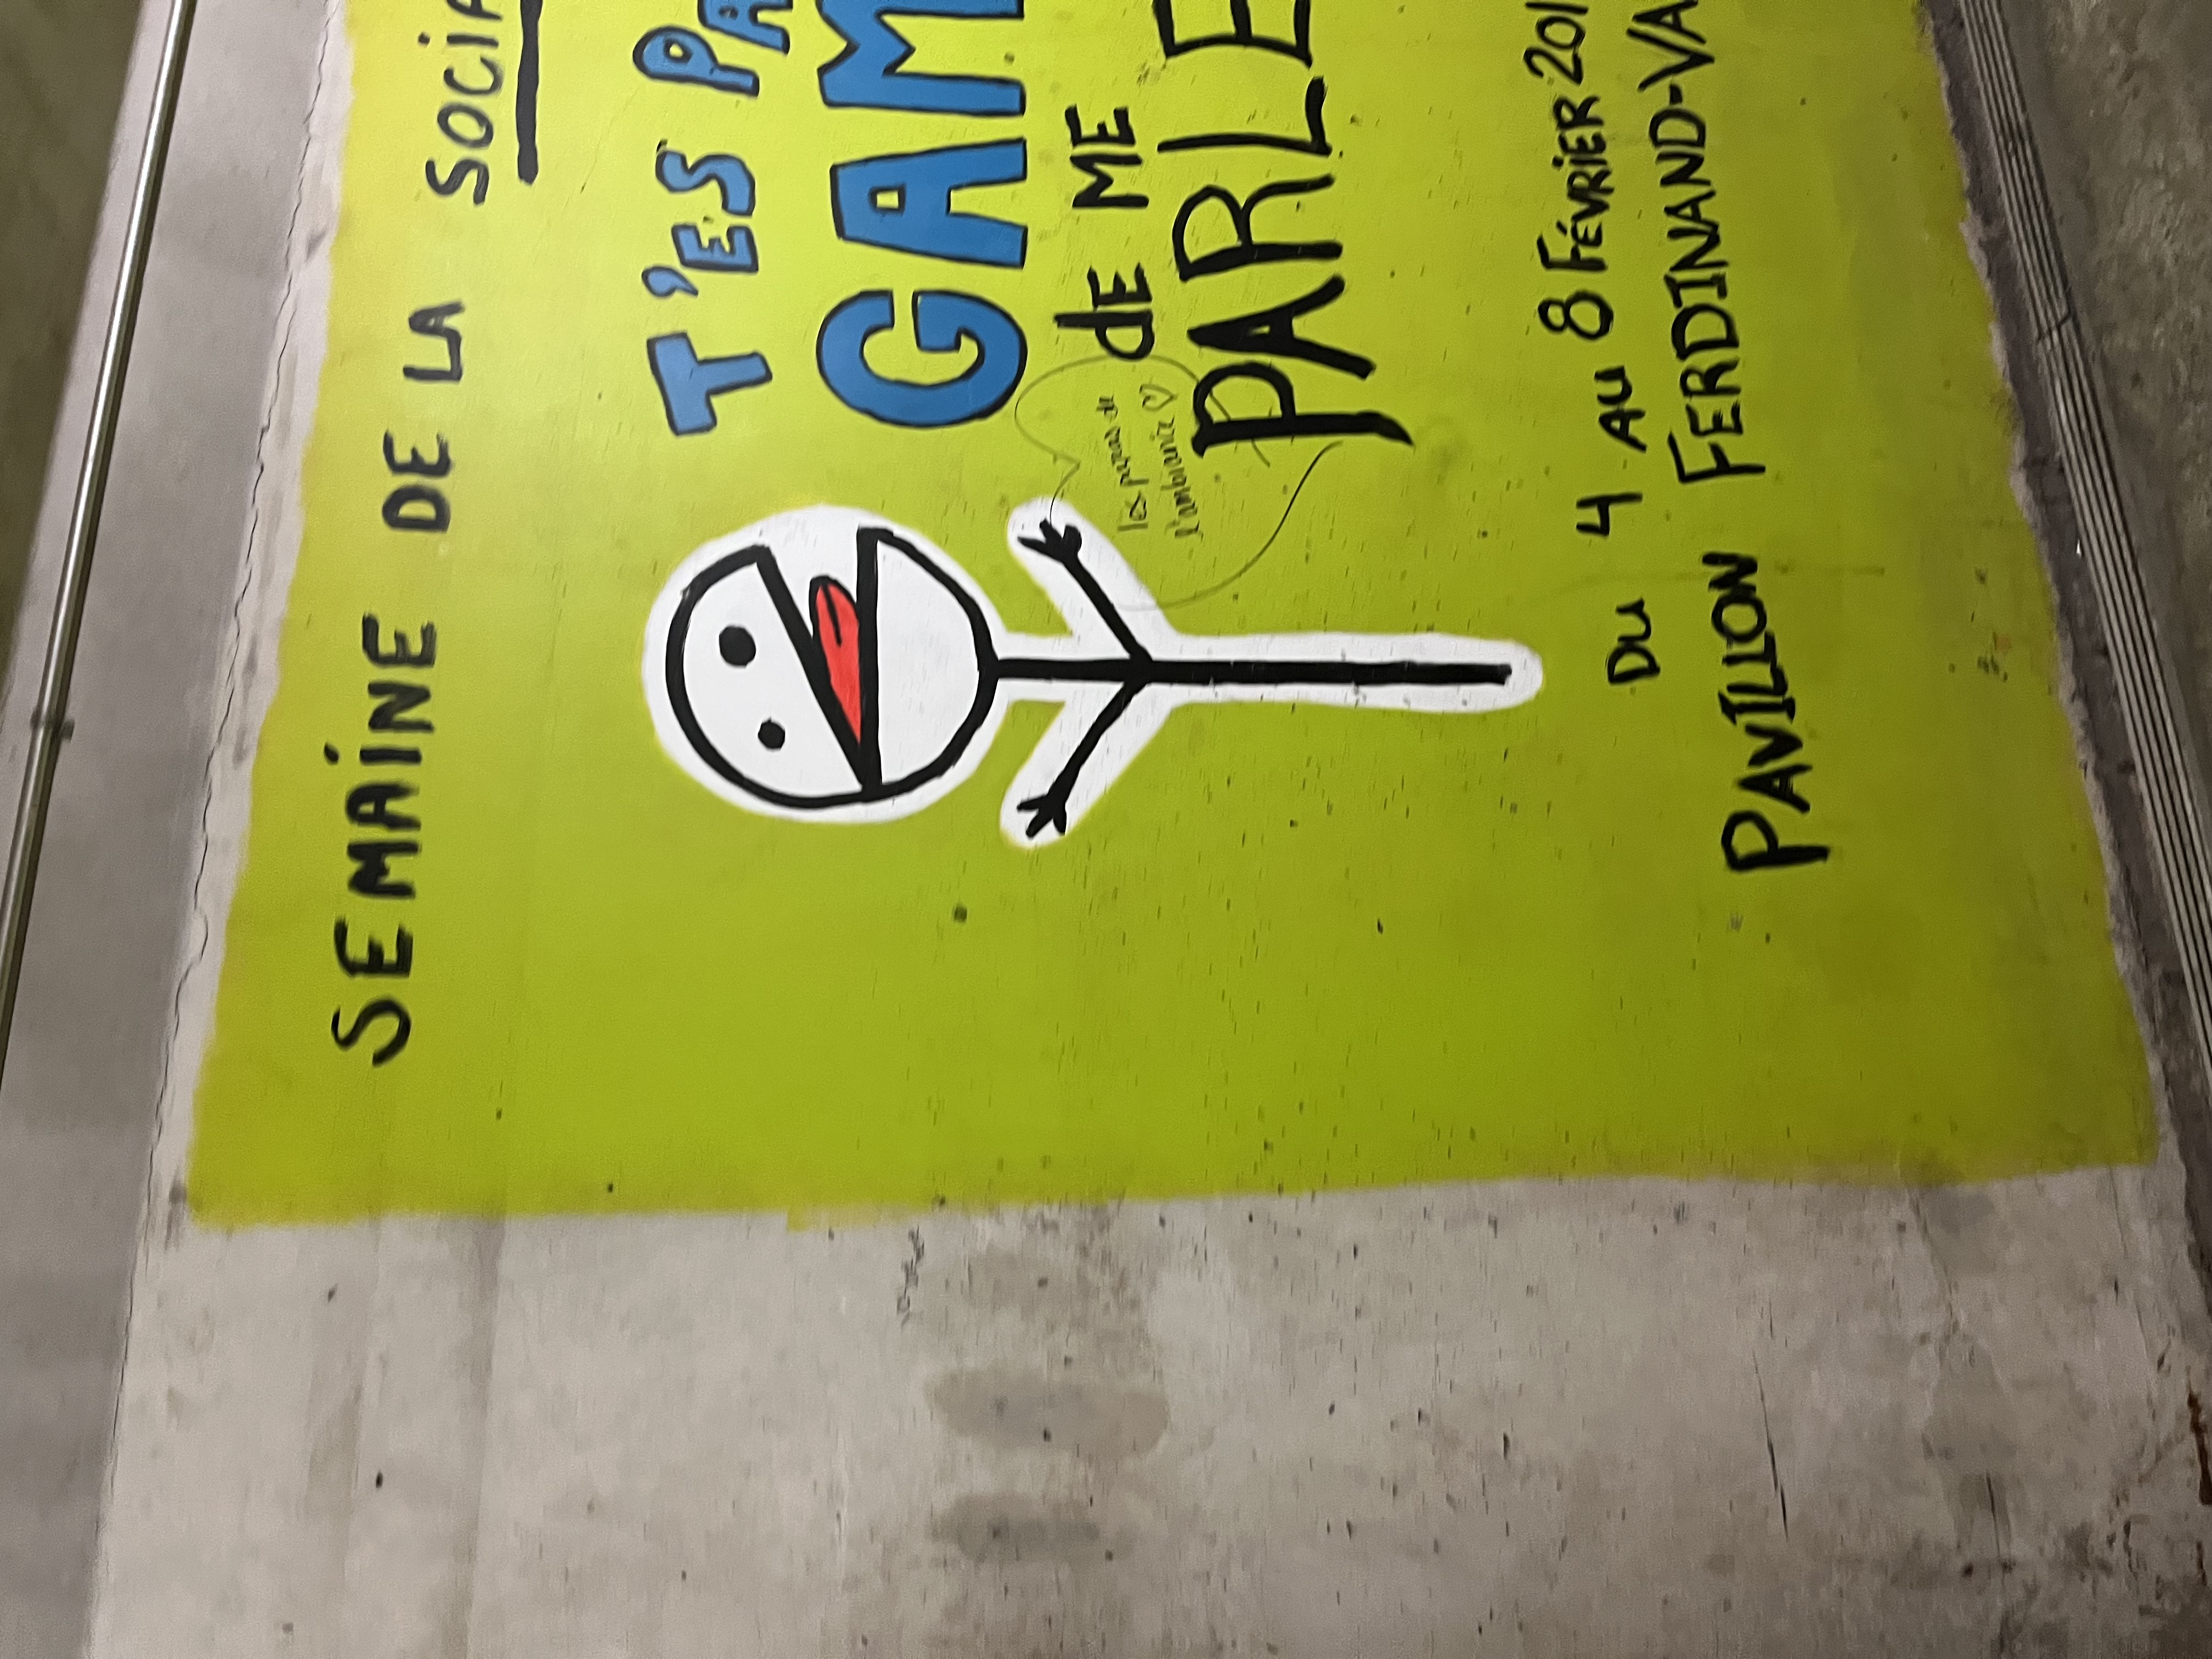 SEMAINE DE LA SOCIA
T'ES PA
GAM
de ME
PARLE
les papas de
l'ambiance ♡
DU 4 AU 8 FÉVRIER 201
PAVILLON FERDINAND-VA